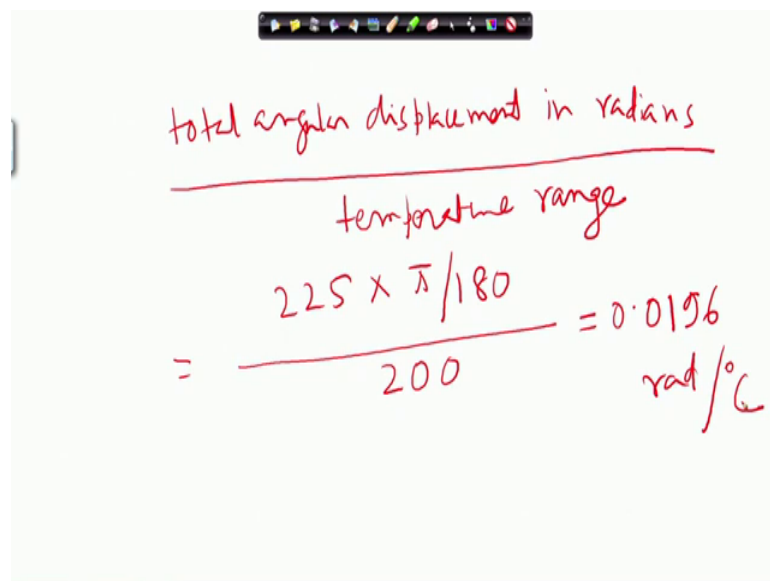 total angular displacement in radians
temperature range
= 225 x π/180 = 0.0196
200 rad/°C